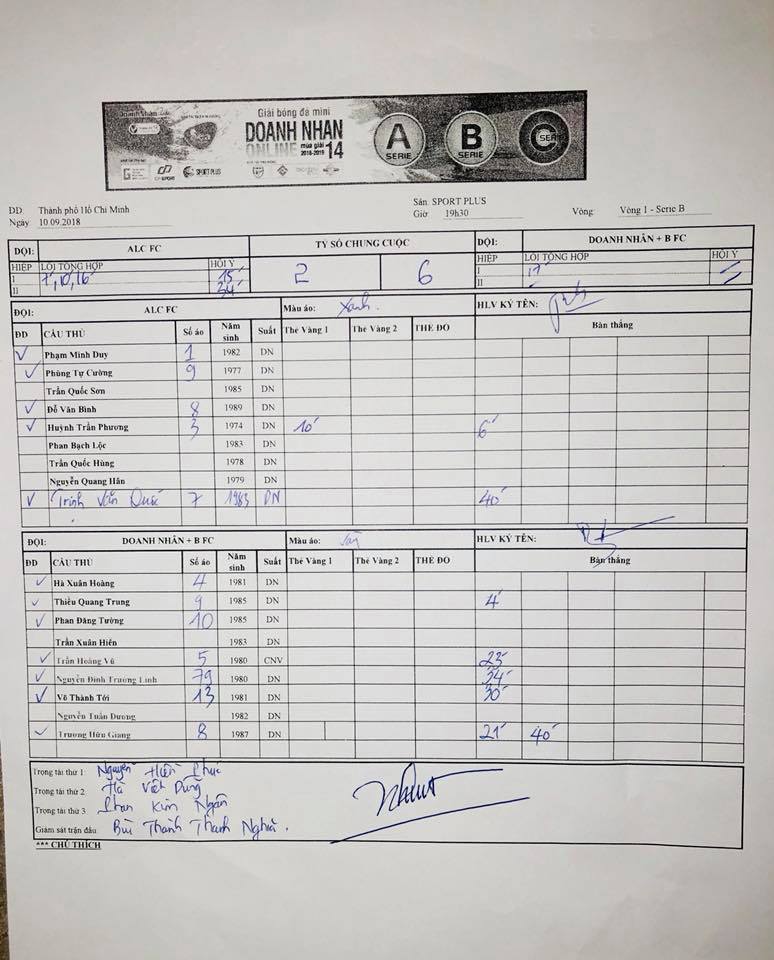 Doanh Nhân
Giải bóng đá mini
DOANH NHAN
ONLINE mùa giải 2018-2019 14
A SERIE B SERIE C SERIE
SPORT PLUS
DD: Thành phố Hồ Chí Minh Sân SPORT PLUS
Ngày: 10.09.2018 Giờ 19h30 Vòng: Vòng 1 - Serie B
ĐỘI: ALC FC TỶ SỐ CHUNG CUỘC ĐỘI: DOANH NHÂN + B FC
HIỆP LỖI TỔNG HỢP HỘI Ý 2 6 HIỆP LỖI TỔNG HỢP HỘI Ý
I 7',10,16' 15' I 17'
II 34' II
ĐỘI: ALC FC Màu áo: Xanh. HLV KÝ TÊN:
ĐD CẦU THỦ Số áo Năm sinh Suất Thẻ Vàng 1 Thẻ Vàng 2 THẺ ĐỎ Bàn thắng
✓ Phạm Minh Duy 1 1982 DN
✓ Phùng Tự Cường 9 1977 DN
Trần Quốc Sơn 1985 DN
✓ Đỗ Văn Bình 8 1989 DN
✓ Huỳnh Trần Phương 3 1974 DN 10' 6'
Phan Bạch Lộc 1983 DN
Trần Quốc Hùng 1978 DN
Nguyễn Quang Hân 1979 DN
✓ Trịnh Văn Quốc 7 1983 DN 40'
ĐỘI: DOANH NHÂN + B FC Màu áo: HLV KÝ TÊN:
ĐD CẦU THỦ Số áo Năm sinh Suất Thẻ Vàng 1 Thẻ Vàng 2 THẺ ĐỎ Bàn thắng
✓ Hà Xuân Hoàng 4 1981 DN
✓ Thiều Quang Trung 9 1985 DN 4'
✓ Phan Đăng Tường 10 1985 DN
Trần Xuân Hiền 1983 DN
✓ Trần Hoàng Vũ 5 1980 CNV 23'
✓ Nguyễn Đình Trương Linh 79 1980 DN 34'
✓ Võ Thành Tới 13 1981 DN 30'
Nguyễn Tuấn Dương 1982 DN
✓ Trương Hữu Giang 8 1987 DN 21' 40'
Trọng tài thứ 1: Nguyễn Hiền
Trọng tài thứ 2: Hà Việt Dũng
Trọng tài thứ 3: Phan Kim Ngân
Giám sát trận đấu: Bùi Thành Thanh Nghĩa.
*** CHÚ THÍCH